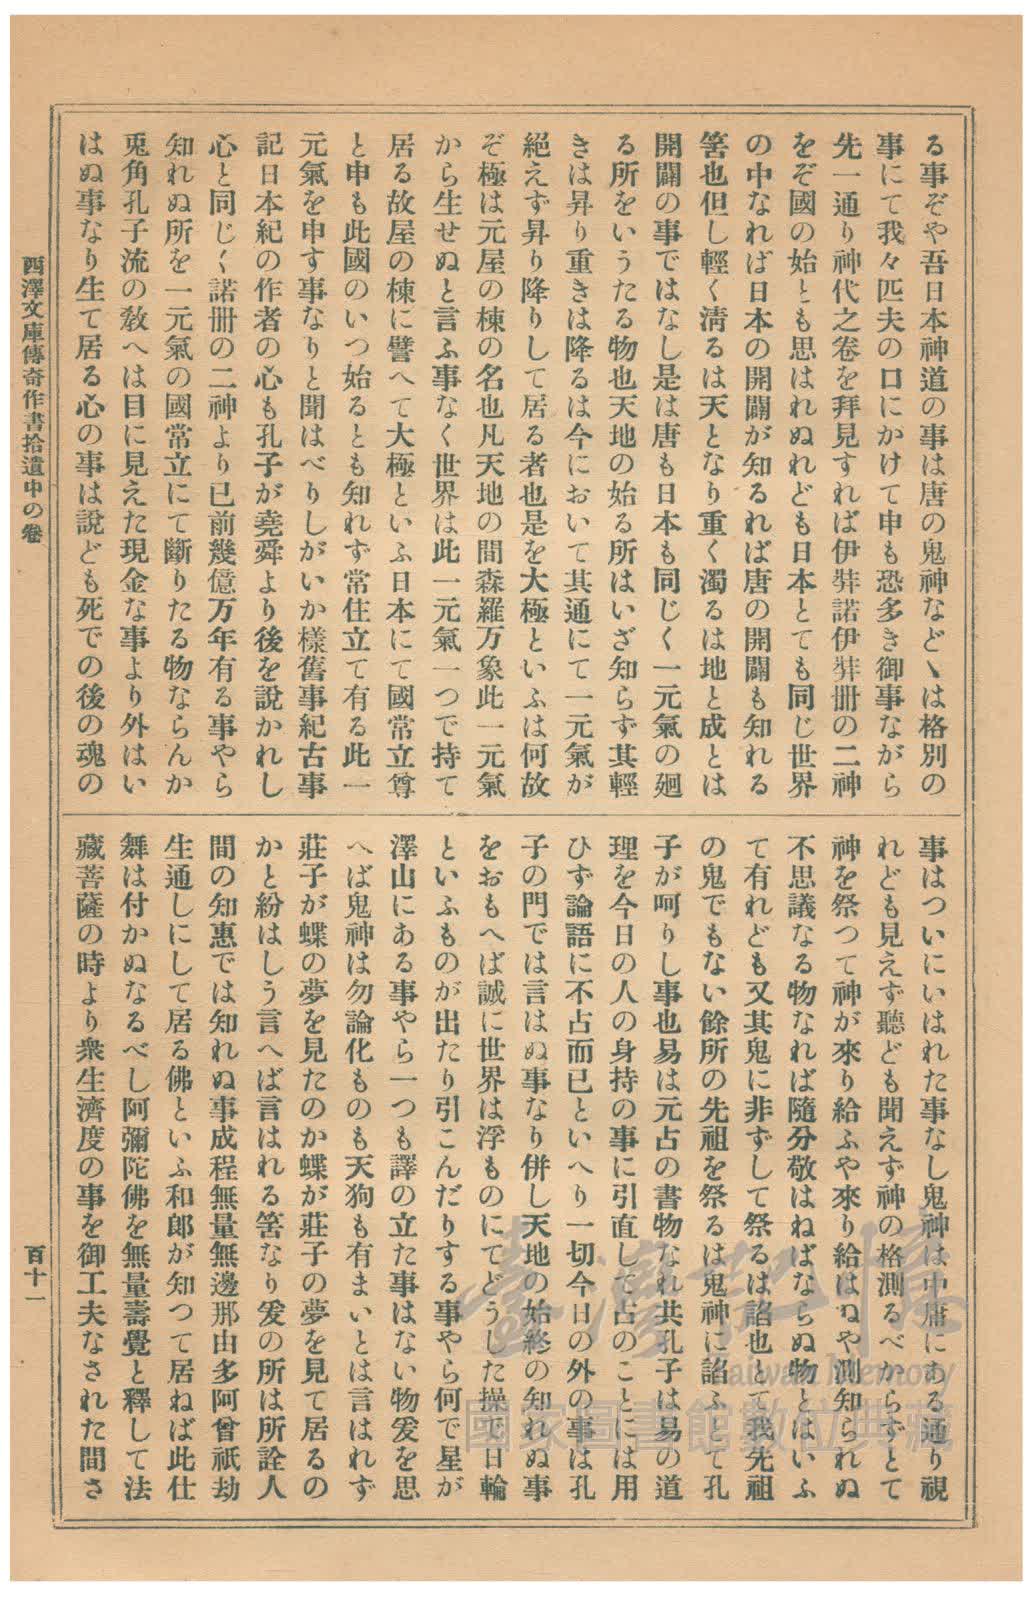 る事ぞや吾日本神道の事は唐の鬼神などゝは格別の
事にて我々匹夫の口にかけて申も恐多き御事ながら
先一通り神代之卷を拜見すれば伊弉諾伊弉冊の二神
をぞ國の始とも思はれぬれども日本とても同じ世界
の中なれば日本の開闢が知るれば唐の開闢も知れる
筈也但し輕く淸るは天となり重く濁るは地と成とは
開闢の事ではなし是は唐も日本も同じく一元氣の廻
る所をいうたる物也天地の始る所はいざ知らず其輕
きは昇り重きは降るは今において其通にて一元氣が
絕えず昇り降りして居る者也是を大極といふは何故
ぞ極は元屋の棟の名也凡天地の間森羅万象此一元氣
から生せぬと言ふ事なく世界は此一元氣一つで持て
居る故屋の棟に譬へて大極といふ日本にて國常立尊
と申も此國のいつ始るとも知れず常住立て有る此一
元氣を申す事なりと聞はべりしがいか樣舊事紀古事
記日本紀の作者の心も孔子が堯舜より後を說かれし
心と同じく諾冊の二神より已前幾億万年有る事やら
知れぬ所を一元氣の國常立にて斷りたる物ならんか
兎角孔子流の敎へは目に見えた現金な事より外はい
はぬ事なり生て居る心の事は說ども死での後の魂の
事はついにいはれた事なし鬼神は中庸にある通り視
れども見えず聽ども聞えず神の格測るべからずとて
神を祭つて神が來り給ふや來り給はぬや測知られぬ
不思議なる物なれば隨分敬はねばならぬ物とはいふ
て有れども又其鬼に非ずして祭るは諂也とて我先祖
の鬼でもない餘所の先祖を祭るは鬼神に諂ふとて孔
子が呵りし事也易は元占の書物なれ共孔子は易の道
理を今日の人の身持の事に引直して占のことには用
ひず論語に不占而已といへり一切今日の外の事は孔
子の門では言はぬ事なり併し天地の始終の知れぬ事
をおもへば誠に世界は浮ものにてどうした操で日輪
といふものが出たり引こんだりする事やら何で星が
澤山にある事やら一つも譯の立た事はない物爰を思
へば鬼神は勿論化ものも天狗も有まいとは言はれず
莊子が蝶の夢を見たのか蝶が莊子の夢を見て居るの
かと紛はしう言へば言はれる筈なり爰の所は所詮人
間の知惠では知れぬ事成程無量無邊那由多阿曾祇劫
生通しにして居る佛といふ和郎が知つて居ねば此仕
舞は付かぬなるべし阿彌陀佛を無量壽覺と釋して法
藏菩薩の時より衆生濟度の事を御工夫なされた間さ
西澤文庫傳奇作書拾遺中の卷
百十一
臺灣記憶
Taiwan Memory
國家圖書館數位典藏